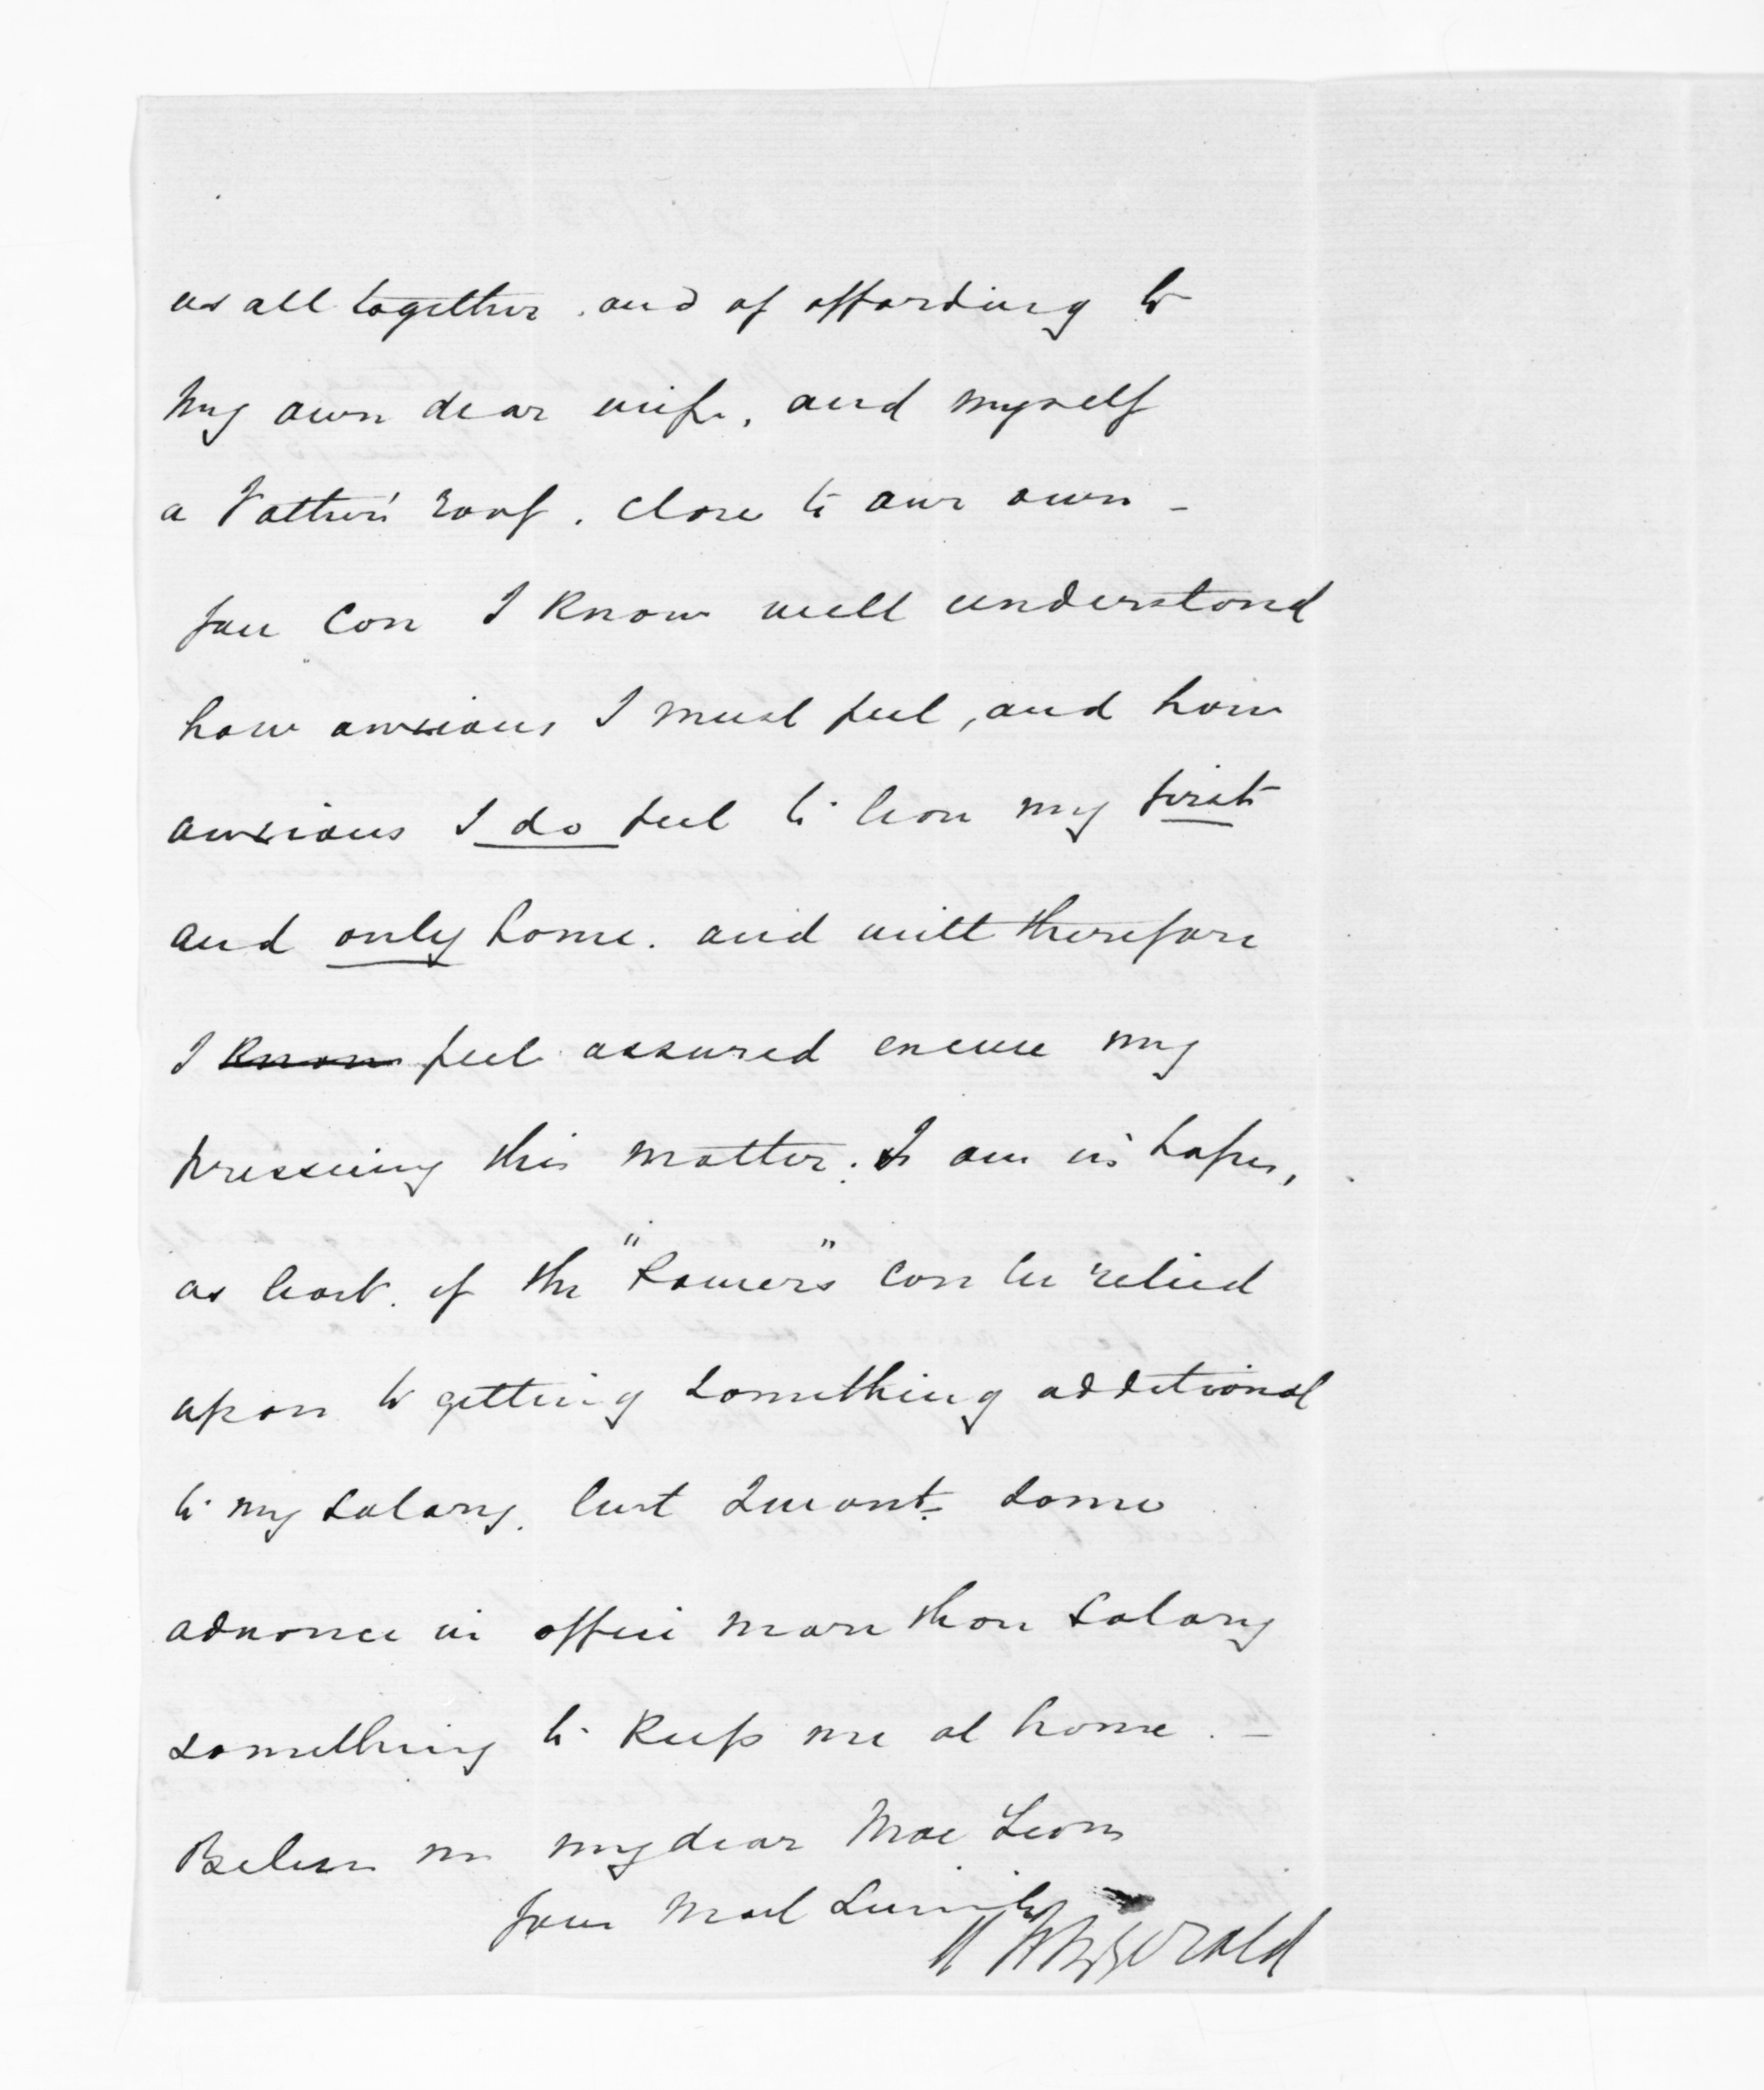 us all together. and of affording to
my own dear wife, and myself
a Father's roof. close to our own -
You can I know well understand
how anxious I must feel, and how
anxious I do feel to have my first
and only home. and will therefore
I know feel assured excuse my
pressing this matter. I am in hopes,
as least. if the "Powers" can be relied
upon to getting something additional
to my salary. but I want some
advance in office more than salary
something to keep me at home. -
Believe me my dear Mac Lean
Your Most Sincerely
Fitzgerald